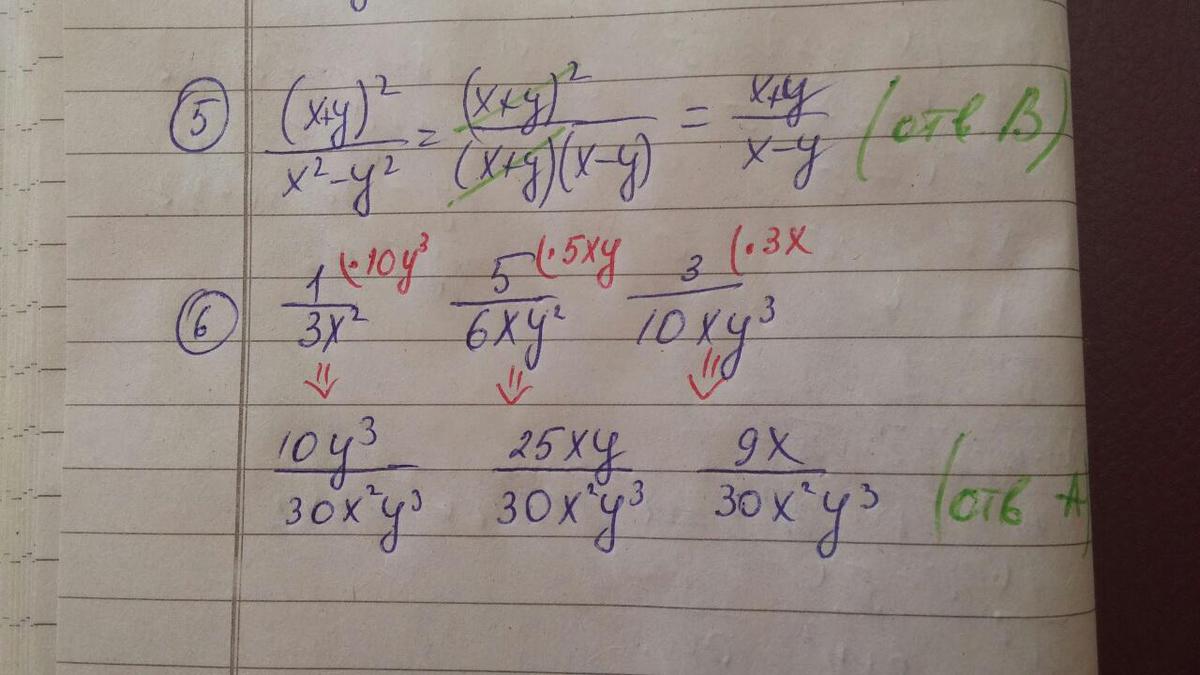 5 (x+y)²/x²-y² = (x+y)²/(x+y)(x-y) = x+y/x-y (отв В)
6 1/3x² (·10y³ 5/6xy² (·5xy 3/10xy³ (·3x
⇓ ⇓ ⇓
10y³/30x²y³ 25xy/30x²y³ 9x/30x²y³ (отв А